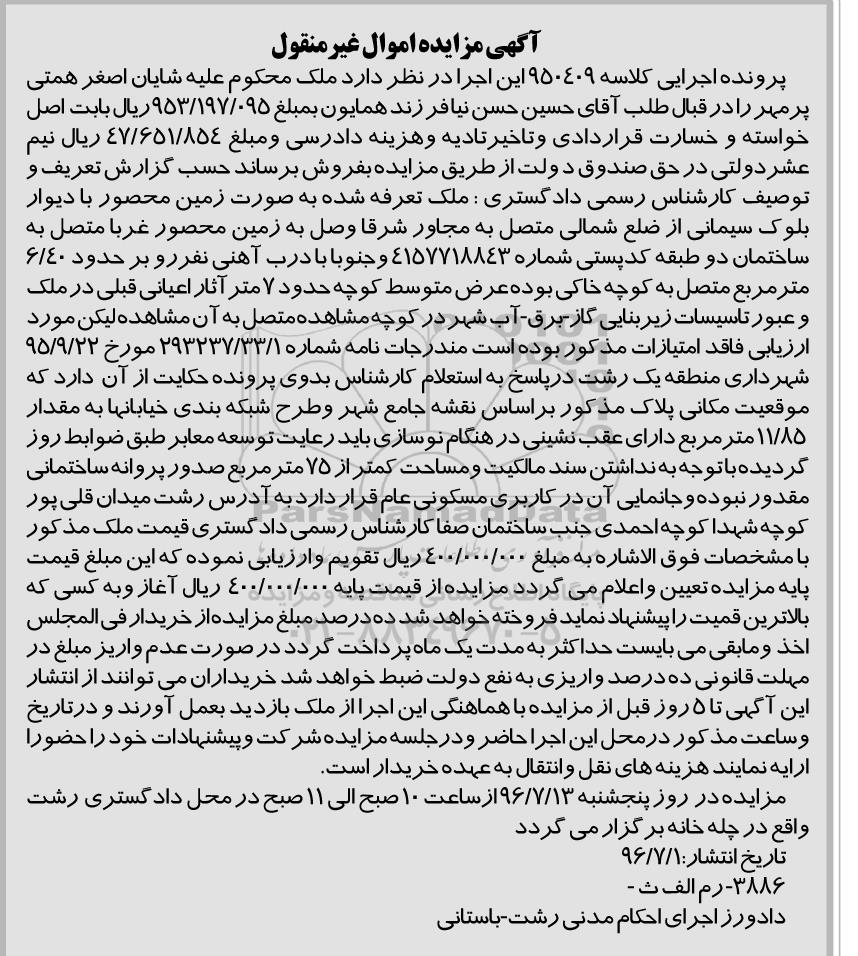 آگهی مزایده اموال غیر منقول
پرونده اجرایی کلاسه ۹۵۰۴۰۹ این اجرا در نظر دارد ملک محکوم علیه شایان اصغر همتی
پرمهر را در قبال طلب آقای حسین حسن نیا فرزند همایون بمبلغ ۹۵۳/۱۹۷/۰۹۵ ریال بابت اصل
خواسته و خسارت قراردادی وتاخیر تادیه وهزینه دادرسی ومبلغ ۴۷/۶۵۱/۸۵۴ ریال نیم
عشر دولتی در حق صندوق دولت از طریق مزایده بفروش برساند حسب گزارش تعریف و
توصیف کارشناس رسمی دادگستری : ملک تعرفه شده به صورت زمین محصور با دیوار
بلوک سیمانی از ضلع شمالی متصل به مجاور شرقا وصل به زمین محصور غربا متصل به
ساختمان دو طبقه کدپستی شماره ۴۱۵۷۷۱۸۸۴۳ وجنوبا با درب آهنی نفررو بر حدود ۶/۴۰
متر مربع متصل به کوچه خاکی بوده عرض متوسط کوچه حدود ۷ متر آثار اعیانی قبلی در ملک
و عبور تاسیسات زیربنایی گاز-برق-آب شهر در کوچه مشاهده متصل به آن مشاهده لیکن مورد
ارزیابی فاقد امتیازات مذکور بوده است مندرجات نامه شماره ۲۹۳۲۳۷/۳۳/۱ مورخ ۹۵/۹/۲۲
شهرداری منطقه یک رشت درپاسخ به استعلام کارشناس بدوی پرونده حکایت از آن دارد که
موقعیت مکانی پلاک مذکور براساس نقشه جامع شهر وطرح شبکه بندی خیابانها به مقدار
۱۱/۸۵ متر مربع دارای عقب نشینی در هنگام نوسازی باید رعایت توسعه معابر طبق ضوابط روز
گردیده باتوجه به نداشتن سند مالکیت ومساحت کمتر از ۷۵ متر مربع صدور پروانه ساختمانی
مقدور نبوده وجانمایی آن در کاربری مسکونی عام قرار دارد به آدرس رشت میدان قلی پور
کوچه شهدا کوچه احمدی جنب ساختمان صفا کارشناس رسمی دادگستری قیمت ملک مذکور
با مشخصات فوق الاشاره به مبلغ ۴۰۰/۰۰۰/۰۰۰ ریال تقویم وارزیابی نموده که این مبلغ قیمت
پایه مزایده تعیین واعلام می گردد مزایده از قیمت پایه ۴۰۰/۰۰۰/۰۰۰ ریال آغاز وبه کسی که
بالاترین قمیت را پیشنهاد نماید فروخته خواهد شد ده درصد مبلغ مزایده از خریدار فی المجلس
اخذ ومابقی می بایست حداکثر به مدت یک ماه پرداخت گردد در صورت عدم واریز مبلغ در
مهلت قانونی ده درصد واریزی به نفع دولت ضبط خواهد شد خریداران می توانند از انتشار
این آگهی تا ۵ روز قبل از مزایده با هماهنگی این اجرا از ملک بازدید بعمل آورند و درتاریخ
وساعت مذکور درمحل این اجرا حاضر ودرجلسه مزایده شرکت وپیشنهادات خود را حضورا
ارایه نمایند هزینه های نقل وانتقال به عهده خریدار است.
مزایده در روز پنجشنبه ۹۶/۷/۱۳ ازساعت ۱۰ صبح الی ۱۱ صبح در محل دادگستری رشت
واقع در چله خانه برگزار می گردد
تاریخ انتشار:۹۶/۷/۱
۳۸۸۶-رم الف ث -
دادورز اجرای احکام مدنی رشت-باستانی
ParsNamadData
پایگاه اطلاع رسانی مناقصه و مزایده
۰۲۱-۸۸۳۴۹۶۷۰-۵